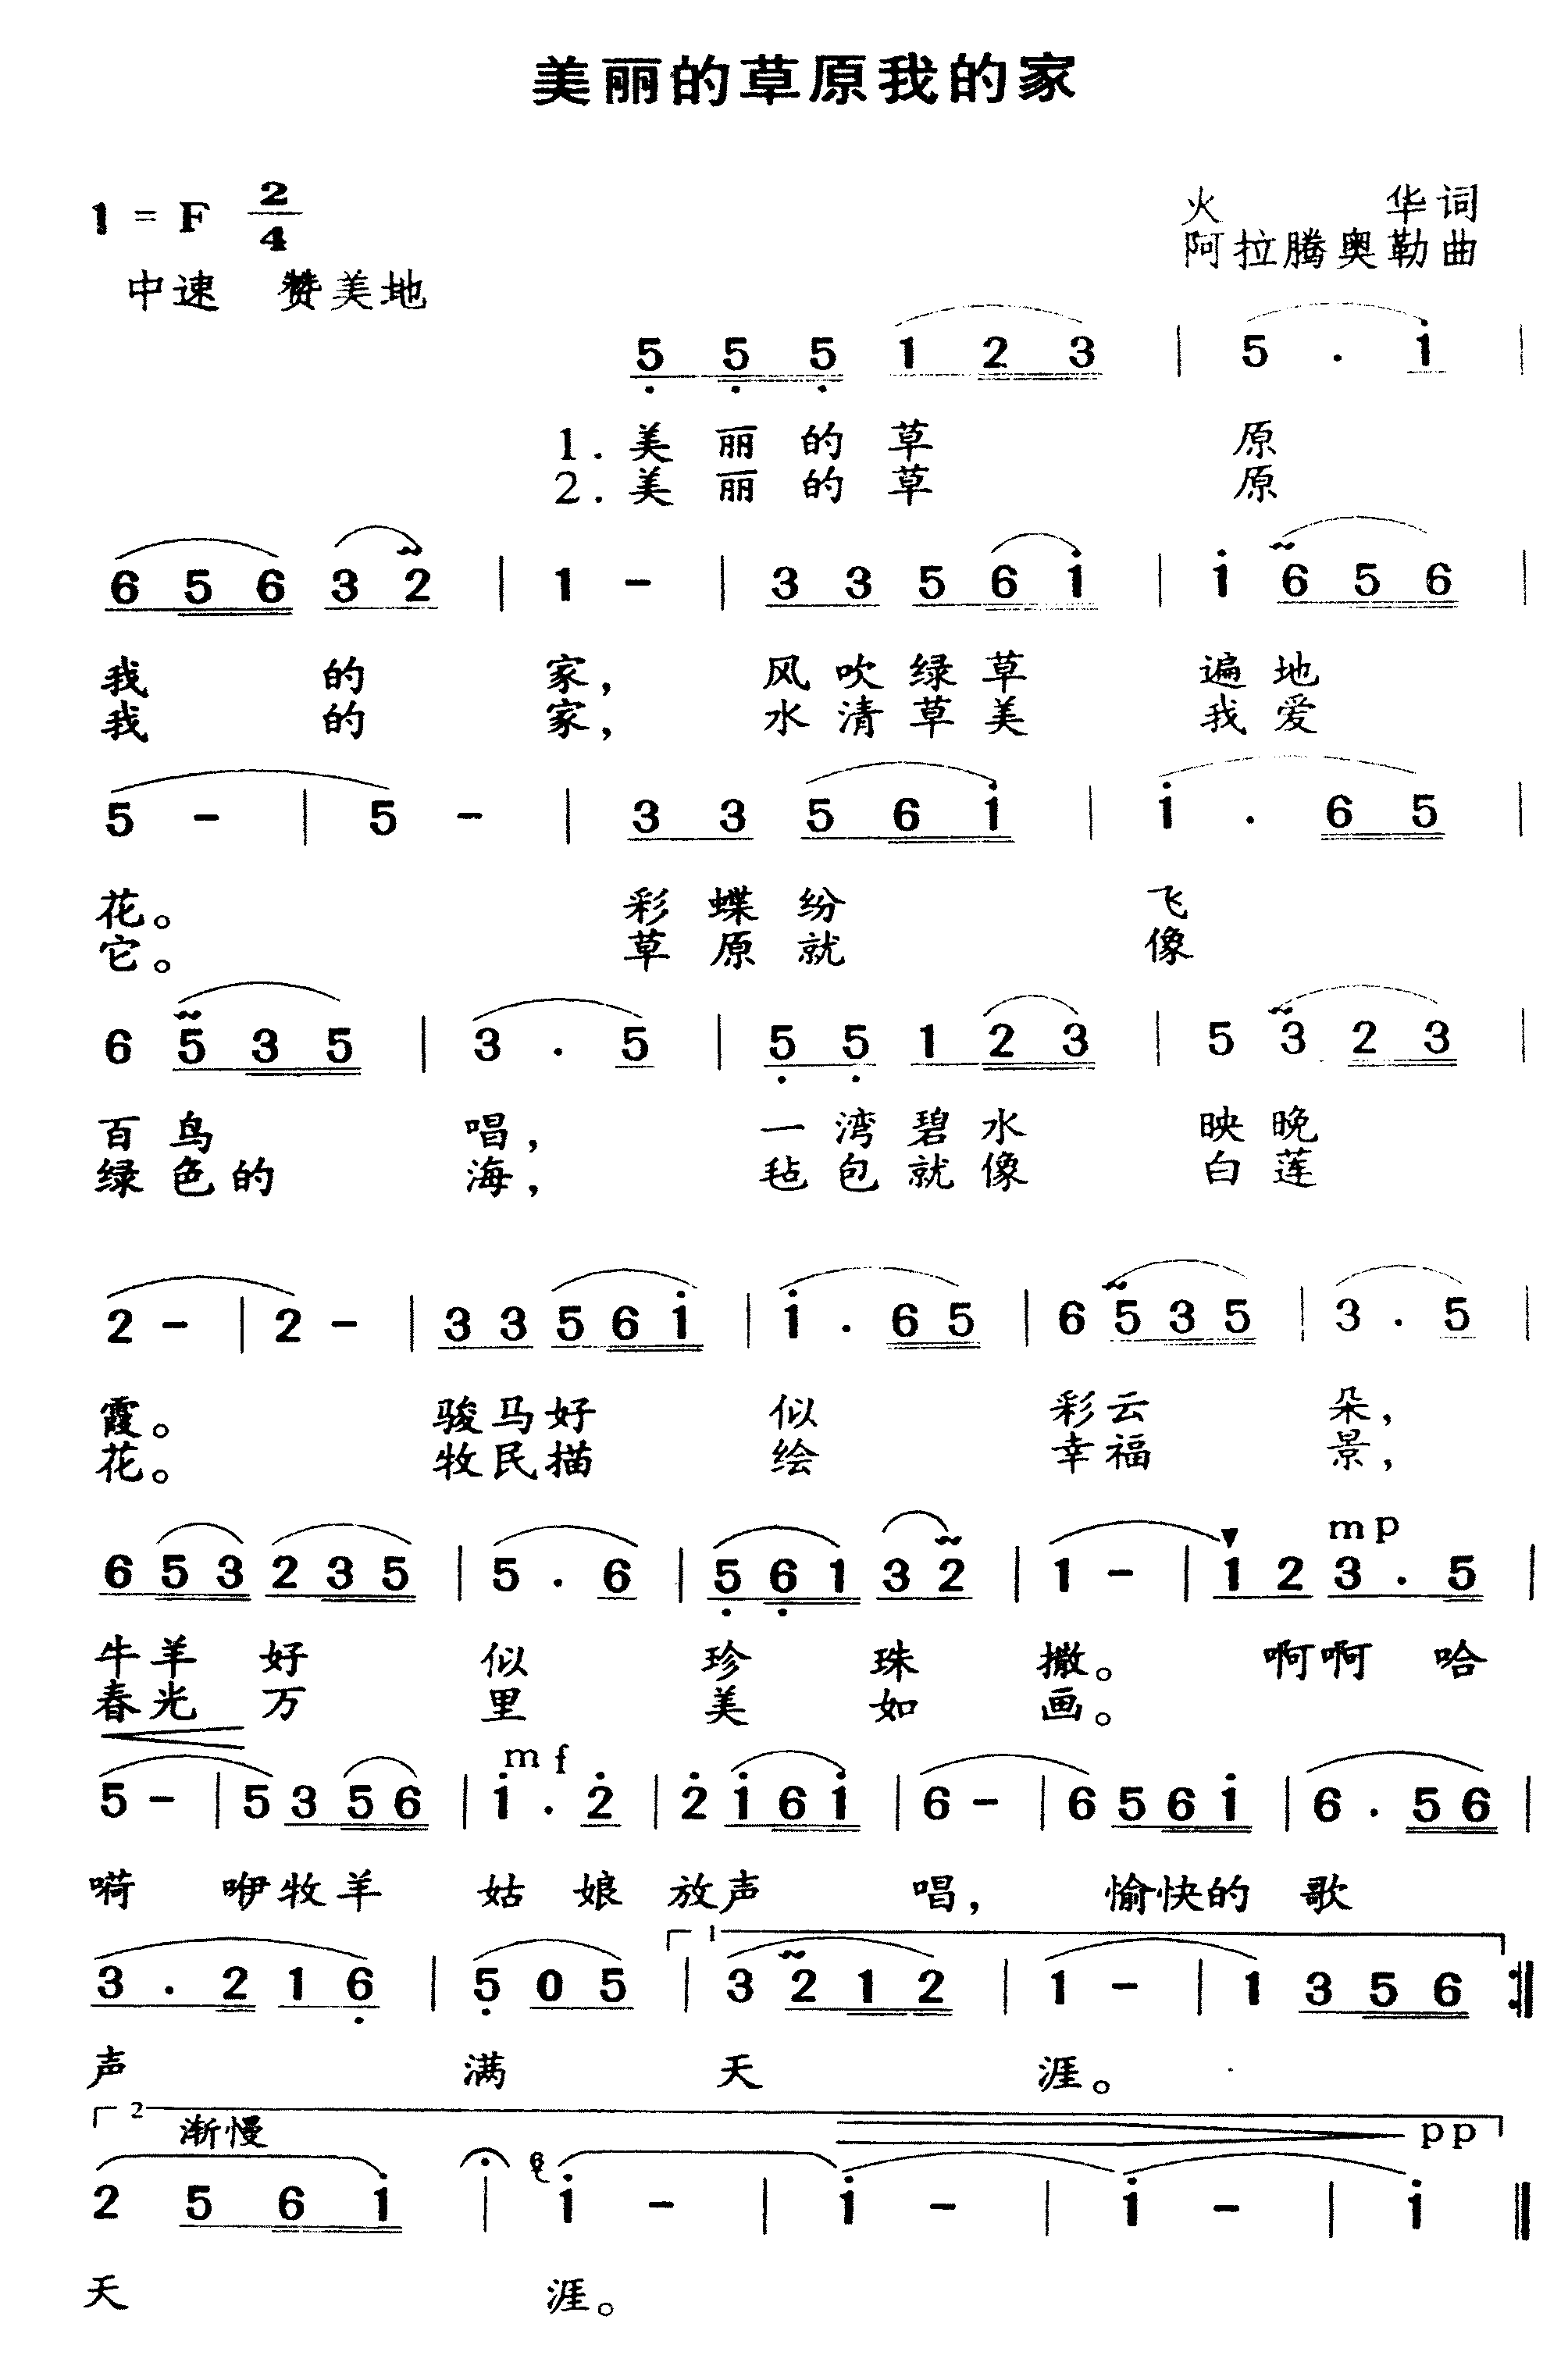 美丽的草原我的家
1 = F 2/4
火 华词
阿拉腾奥勒曲
中速 赞美地
5 5 5 1 2 3 | 5 · i |
1. 美 丽 的 草 原
2. 美 丽 的 草 原
6 5 6 3 2 | 1 - | 3 3 5 6 i | i 6 5 6 |
我 的 家， 风 吹 绿 草 遍 地
我 的 家， 水 清 草 美 我 爱
5 - | 5 - | 3 3 5 6 i | i · 6 5 |
花。 彩 蝶 纷 飞
它。 草 原 就 像
6 5 3 5 | 3 · 5 | 5 5 1 2 3 | 5 3 2 3 |
百 鸟 唱， 一 湾 碧 水 映 晚
绿 色 的 海， 毡 包 就 像 白 莲
2 - | 2 - | 3 3 5 6 i | i · 6 5 | 6 5 3 5 | 3 · 5 |
霞。 骏 马 好 似 彩 云 朵，
花。 牧 民 描 绘 幸 福 景，
mp
6 5 3 2 3 5 | 5 · 6 | 5 6 1 3 2 | 1 - | 1 2 3 · 5 |
牛 羊 好 似 珍 珠 撒。 啊 啊 哈
春 光 万 里 美 如 画。
mf
5 - | 5 3 5 6 | i · 2 | 2 i 6 i | 6 - | 6 5 6 i | 6 · 5 6 |
嗬 咿 牧 羊 姑 娘 放 声 唱， 愉 快 的 歌
1
3 · 2 1 6 | 5 0 5 | 3 2 1 2 | 1 - | 1 3 5 6 :‖
声 满 天 涯。
2
渐慢 pp
2 5 6 i | 6 i - | i - | i - | i ‖
天 涯。